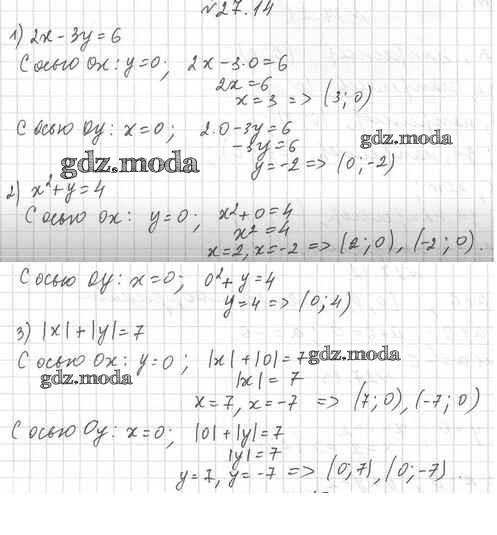 №27.14
1) 2x - 3y = 6
С осью Ox: y=0; 2x - 3·0 = 6
2x = 6
x = 3 => (3; 0)
С осью Oy: x=0; 2·0 - 3y = 6
gdz.moda
-3y = 6
gdz.moda
y = -2 => (0; -2)
2) x² + y = 4
С осью Ox: y=0; x² + 0 = 4
x² = 4
x = 2, x = -2 => (2; 0), (-2; 0).
С осью Oy: x=0; 0² + y = 4
y = 4 => (0; 4)
3) |x| + |y| = 7
С осью Ox: y=0; |x| + |0| = 7
gdz.moda
gdz.moda
|x| = 7
x = 7, x = -7 => (7; 0), (-7; 0)
С осью Oy: x=0; |0| + |y| = 7
|y| = 7
y = 7, y = -7 => (0; 7), (0; -7).